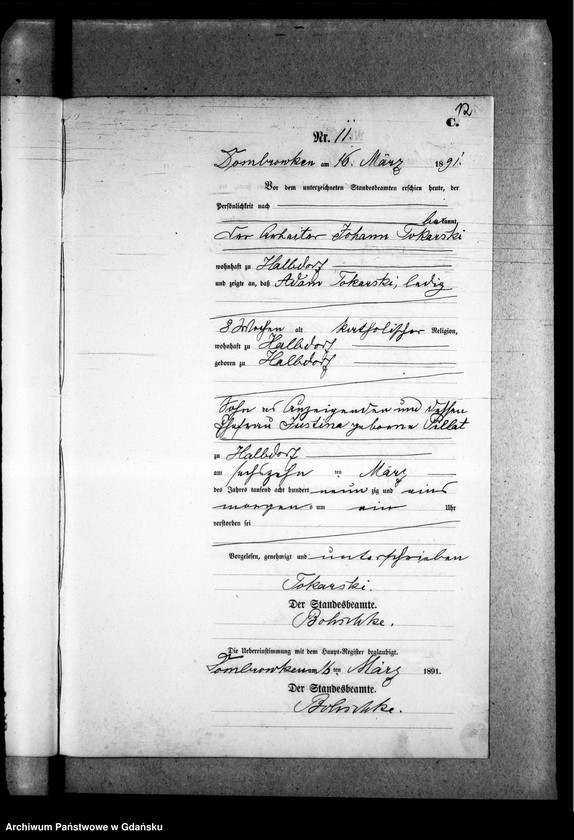 12
C.
Nr. 11.
Dombrowken am 16 März 1891.
Vor dem unterzeichneten Standesbeamten erschien heute, der
Persönlichkeit nach
bekannt,
der Arbeiter Johann Tokarski
wohnhaft zu Halbdorf
und zeigte an, daß Adam Tokarski, ledig
3 Wochen alt katholischer Religion,
wohnhaft zu Halbdorf
geboren zu Halbdorf
Sohn des Anzeigenden und dessen
Ehefrau Justina geborne
zu Halbdorf
am sechszehn ten März
des Jahres tausend acht hundert neun zig und eins
morgens um ein Uhr
verstorben sei
Vorgelesen, genehmigt und unterschrieben
Tokarski.
Der Standesbeamte.
Bohschke.
Die Uebereinstimmung mit dem Haupt-Register beglaubigt.
Dombrowken am 16 ten März 1891.
Der Standesbeamte.
Bohschke.
Archiwum Państwowe w Gdańsku